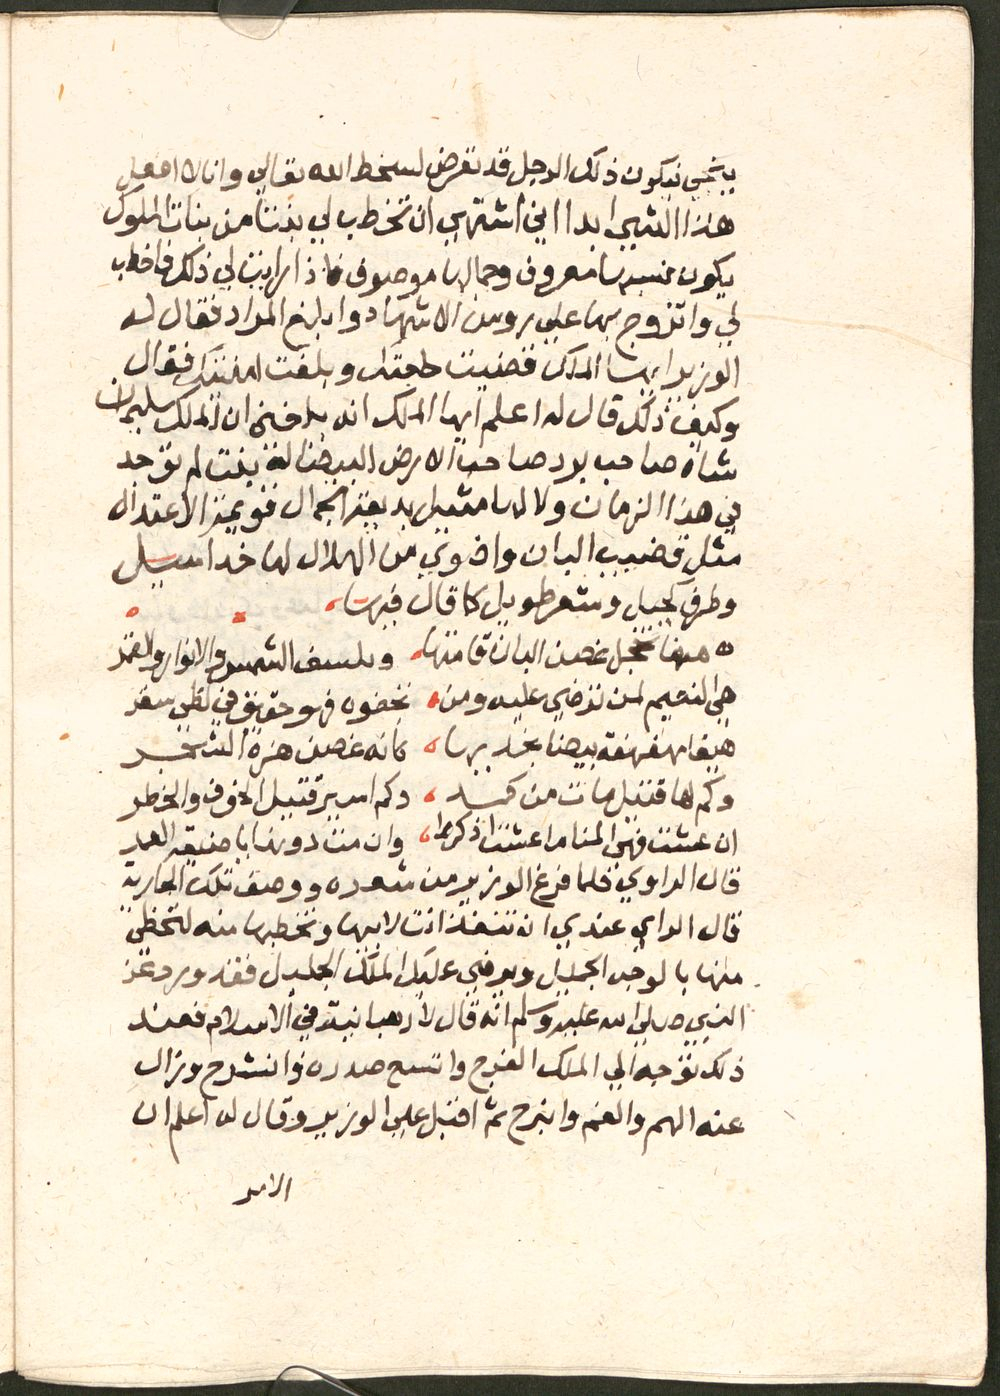 ينبغي فيكون ذلك الرجل قد تعرض لسخط الله تعالي وانا لا افعل
هذا الشي ابدا اني اشتهي ان تخطب لي بنتا من بنات الملوك
يكون نسبها معروف وجمالها موصوف فاذا رايت لي ذلك فاخطب
لي واتزوج بها علي روس الاشهاد وابلغ المراد فقال له
الوزير ايها الملك قضيت حاجتك وبلغت امنيتك فقال
وكيف ذلك قال له اعلم ايها الملك انه بلغني ان الملك سليمان
شاه صاحب صاحب الارض البيضا له بنت لم توجد
في هذا الزمان ولا لها مثيل بديعة الجمال قويمة الاعتدال
مثل قضيب البان واضوي من الهلال لها خد اسيل
وطرف كحيل وشعر طويل كما قال فيها
هيفا تخجل غصن البان قامتها وللسف الشمس والانوار والقمر
هي النعيم لمن ترضي عليه ومن تجفوه فهو حقيق في لظي سقر
هيفا مهفهفة بيضا بخديها كانه غصن هزه الشجر
وكم لها قتيل مات من كمد وكم اسير قتيل الخوف والخطر
ان عشت فهي المنا ما عشت اذكرها وان مت دونها يا ضيعة العمر
قال الراوي فلما فرغ الوزير من شعره ووصف تلك الجارية
قال الراي عندي ان تنفذ انت لابيها وتخطبها منه لتحظي
منها بالوجه الجميل ويرضي عليك الملك الجليل فقد ورد عن
النبي صلي الله عليه وسلم انه قال لا رهبانية في الاسلام فعند
ذلك توجه الي الملك الفرح واتسع صدره وانشرح وزال
عنه الهم والغم ثم اقبل علي الوزير وقال له اعلم ان
الامر